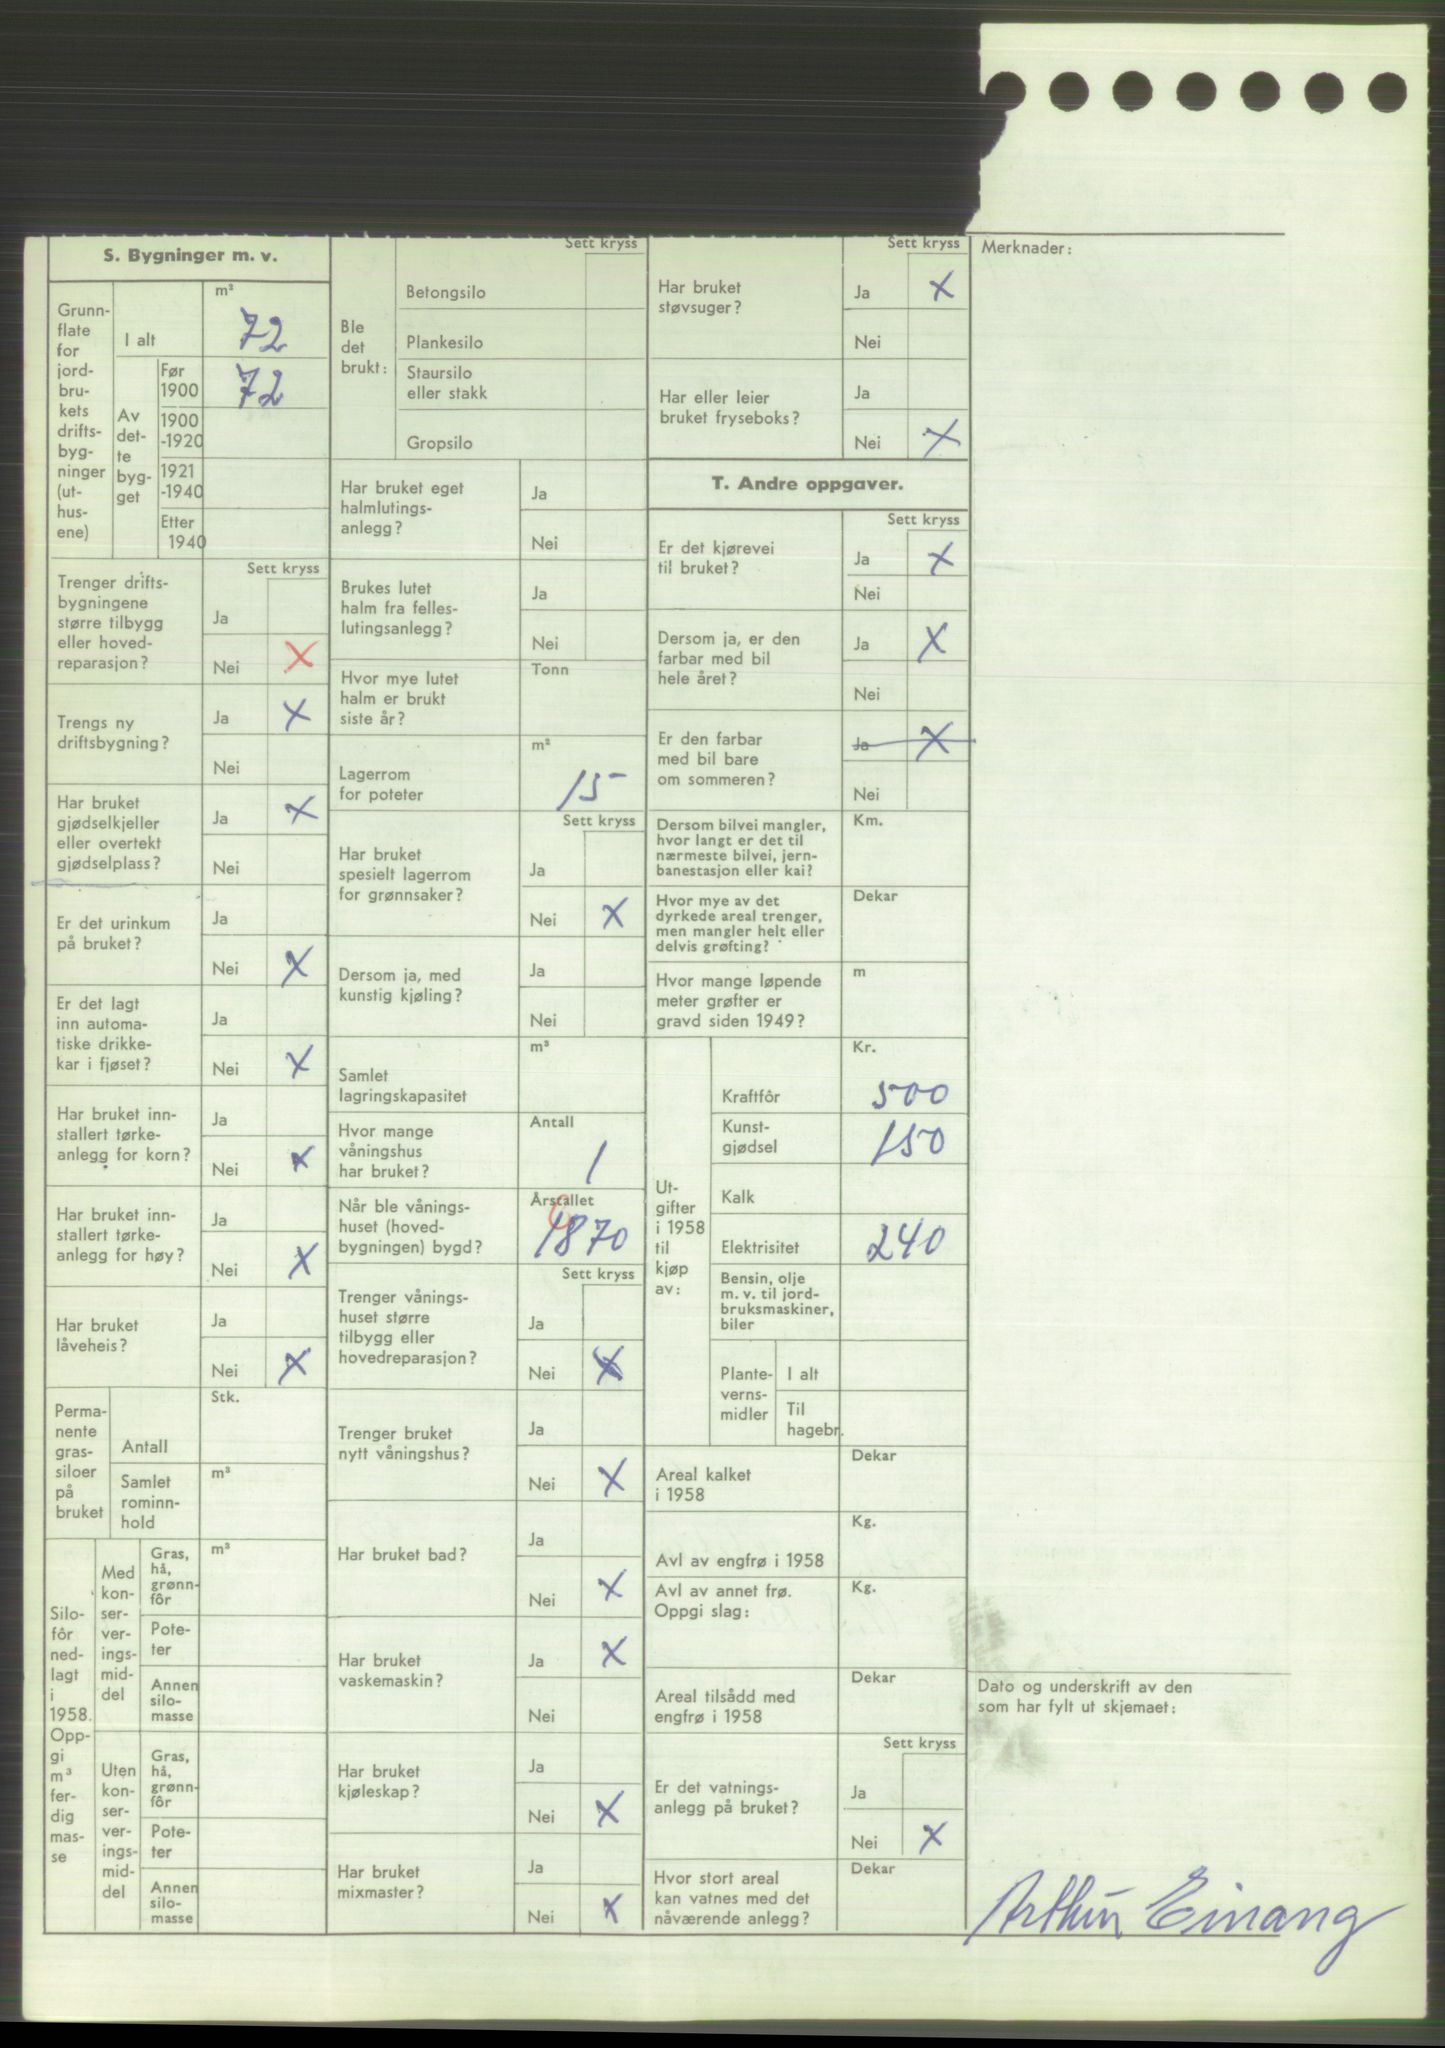 S. Bygninger m. v.
Grunn-
flate
for
jord-
bru-
kets
drifts-
byg-
ninger
(ut-
hus-
ene)
m²
I alt
72
Av
det-
te
byg-
get
Før
1900
72
1900
-1920
1921
-1940
Etter
1940
Sett kryss
Trenger drifts-
bygningene
større tilbygg
eller hoved-
reparasjon?
Ja
Nei X
Trengs ny
driftsbygning?
Ja X
Nei
Har bruket
gjødselkjeller
eller overtekt
gjødselplass?
Ja X
Nei
Er det urinkum
på bruket?
Ja
Nei X
Er det lagt
inn automa-
tiske drikke-
kar i fjøset?
Ja
Nei X
Har bruket inn-
stallert tørke-
anlegg for korn?
Ja
Nei X
Har bruket inn-
stallert tørke-
anlegg for høy?
Ja
Nei X
Har bruket
låveheis?
Ja
Nei X
Perma-
nente
gras-
siloer
på
bruket
Stk.
Antall
m³
Samlet
rominn-
hold
Silo-
fôr
ned-
lagt
i
1958.
Opp-
gi
m³
fer-
dig
mas-
se
Med
kon-
ser-
ver-
ings-
mid-
del
m³
Gras,
hå,
grønn-
fôr
Pote-
ter
Annen
silo-
masse
Uten
kon-
ser-
ver-
ings-
mid-
del
Gras,
hå,
grønn-
fôr
Pote-
ter
Annen
silo-
masse
Ble
det
brukt:
Sett kryss
Betongsilo
Plankesilo
Staursilo
eller stakk
Gropsilo
Har bruket eget
halmlutings-
anlegg?
Ja
Nei
Brukes lutet
halm fra felles-
lutingsanlegg?
Ja
Nei
Hvor mye lutet
halm er brukt
siste år?
Tonn
Lagerrom
for poteter
m²
15
Sett kryss
Har bruket
spesielt lagerrom
for grønnsaker?
Ja
Nei X
Dersom ja, med
kunstig kjøling?
Ja
Nei
Samlet
lagringskapasitet
m³
Hvor mange
våningshus
har bruket?
Antall
1
Når ble vånings-
huset (hoved-
bygningen) bygd?
Årstallet
1870
Sett kryss
Trenger vånings-
huset større
tilbygg eller
hovedreparasjon?
Ja
Nei X
Trenger bruket
nytt våningshus?
Ja
Nei X
Har bruket bad?
Ja
Nei X
Har bruket
vaskemaskin?
Ja X
Nei
Har bruket
kjøleskap?
Ja
Nei X
Har bruket
mixmaster?
Ja
Nei X
Sett kryss
Har bruket
støvsuger?
Ja X
Nei
Har eller leier
bruket fryseboks?
Ja
Nei X
T. Andre oppgaver.
Sett kryss
Er det kjørevei
til bruket?
Ja X
Nei
Dersom ja, er den
farbar med bil
hele året?
Ja X
Nei
Er den farbar
med bil bare
om sommeren?
Ja X
Nei
Dersom bilvei mangler,
hvor langt er det til
nærmeste bilvei, jern-
banestasjon eller kai?
Km.
Hvor mye av det
dyrkede areal trenger,
men mangler helt eller
delvis grøfting?
Dekar
Hvor mange løpende
meter grøfter er
gravd siden 1949?
m
Ut-
gifter
i 1958
til
kjøp
av:
Kr.
Kraftfôr 500
Kunst-
gjødsel 150
Kalk
Elektrisitet 240
Bensin, olje
m. v. til jord-
bruksmaskiner,
biler
Plante-
verns-
midler
I alt
Til
hagebr.
Areal kalket
i 1958
Dekar
Avl av engfrø i 1958
Kg.
Avl av annet frø.
Oppgi slag:
Kg.
Areal tilsådd med
engfrø i 1958
Dekar
Sett kryss
Er det vatnings-
anlegg på bruket?
Ja
Nei X
Hvor stort areal
kan vatnes med det
nåværende anlegg?
Dekar
Merknader:
Dato og underskrift av den
som har fylt ut skjemaet:
Arthur Einang